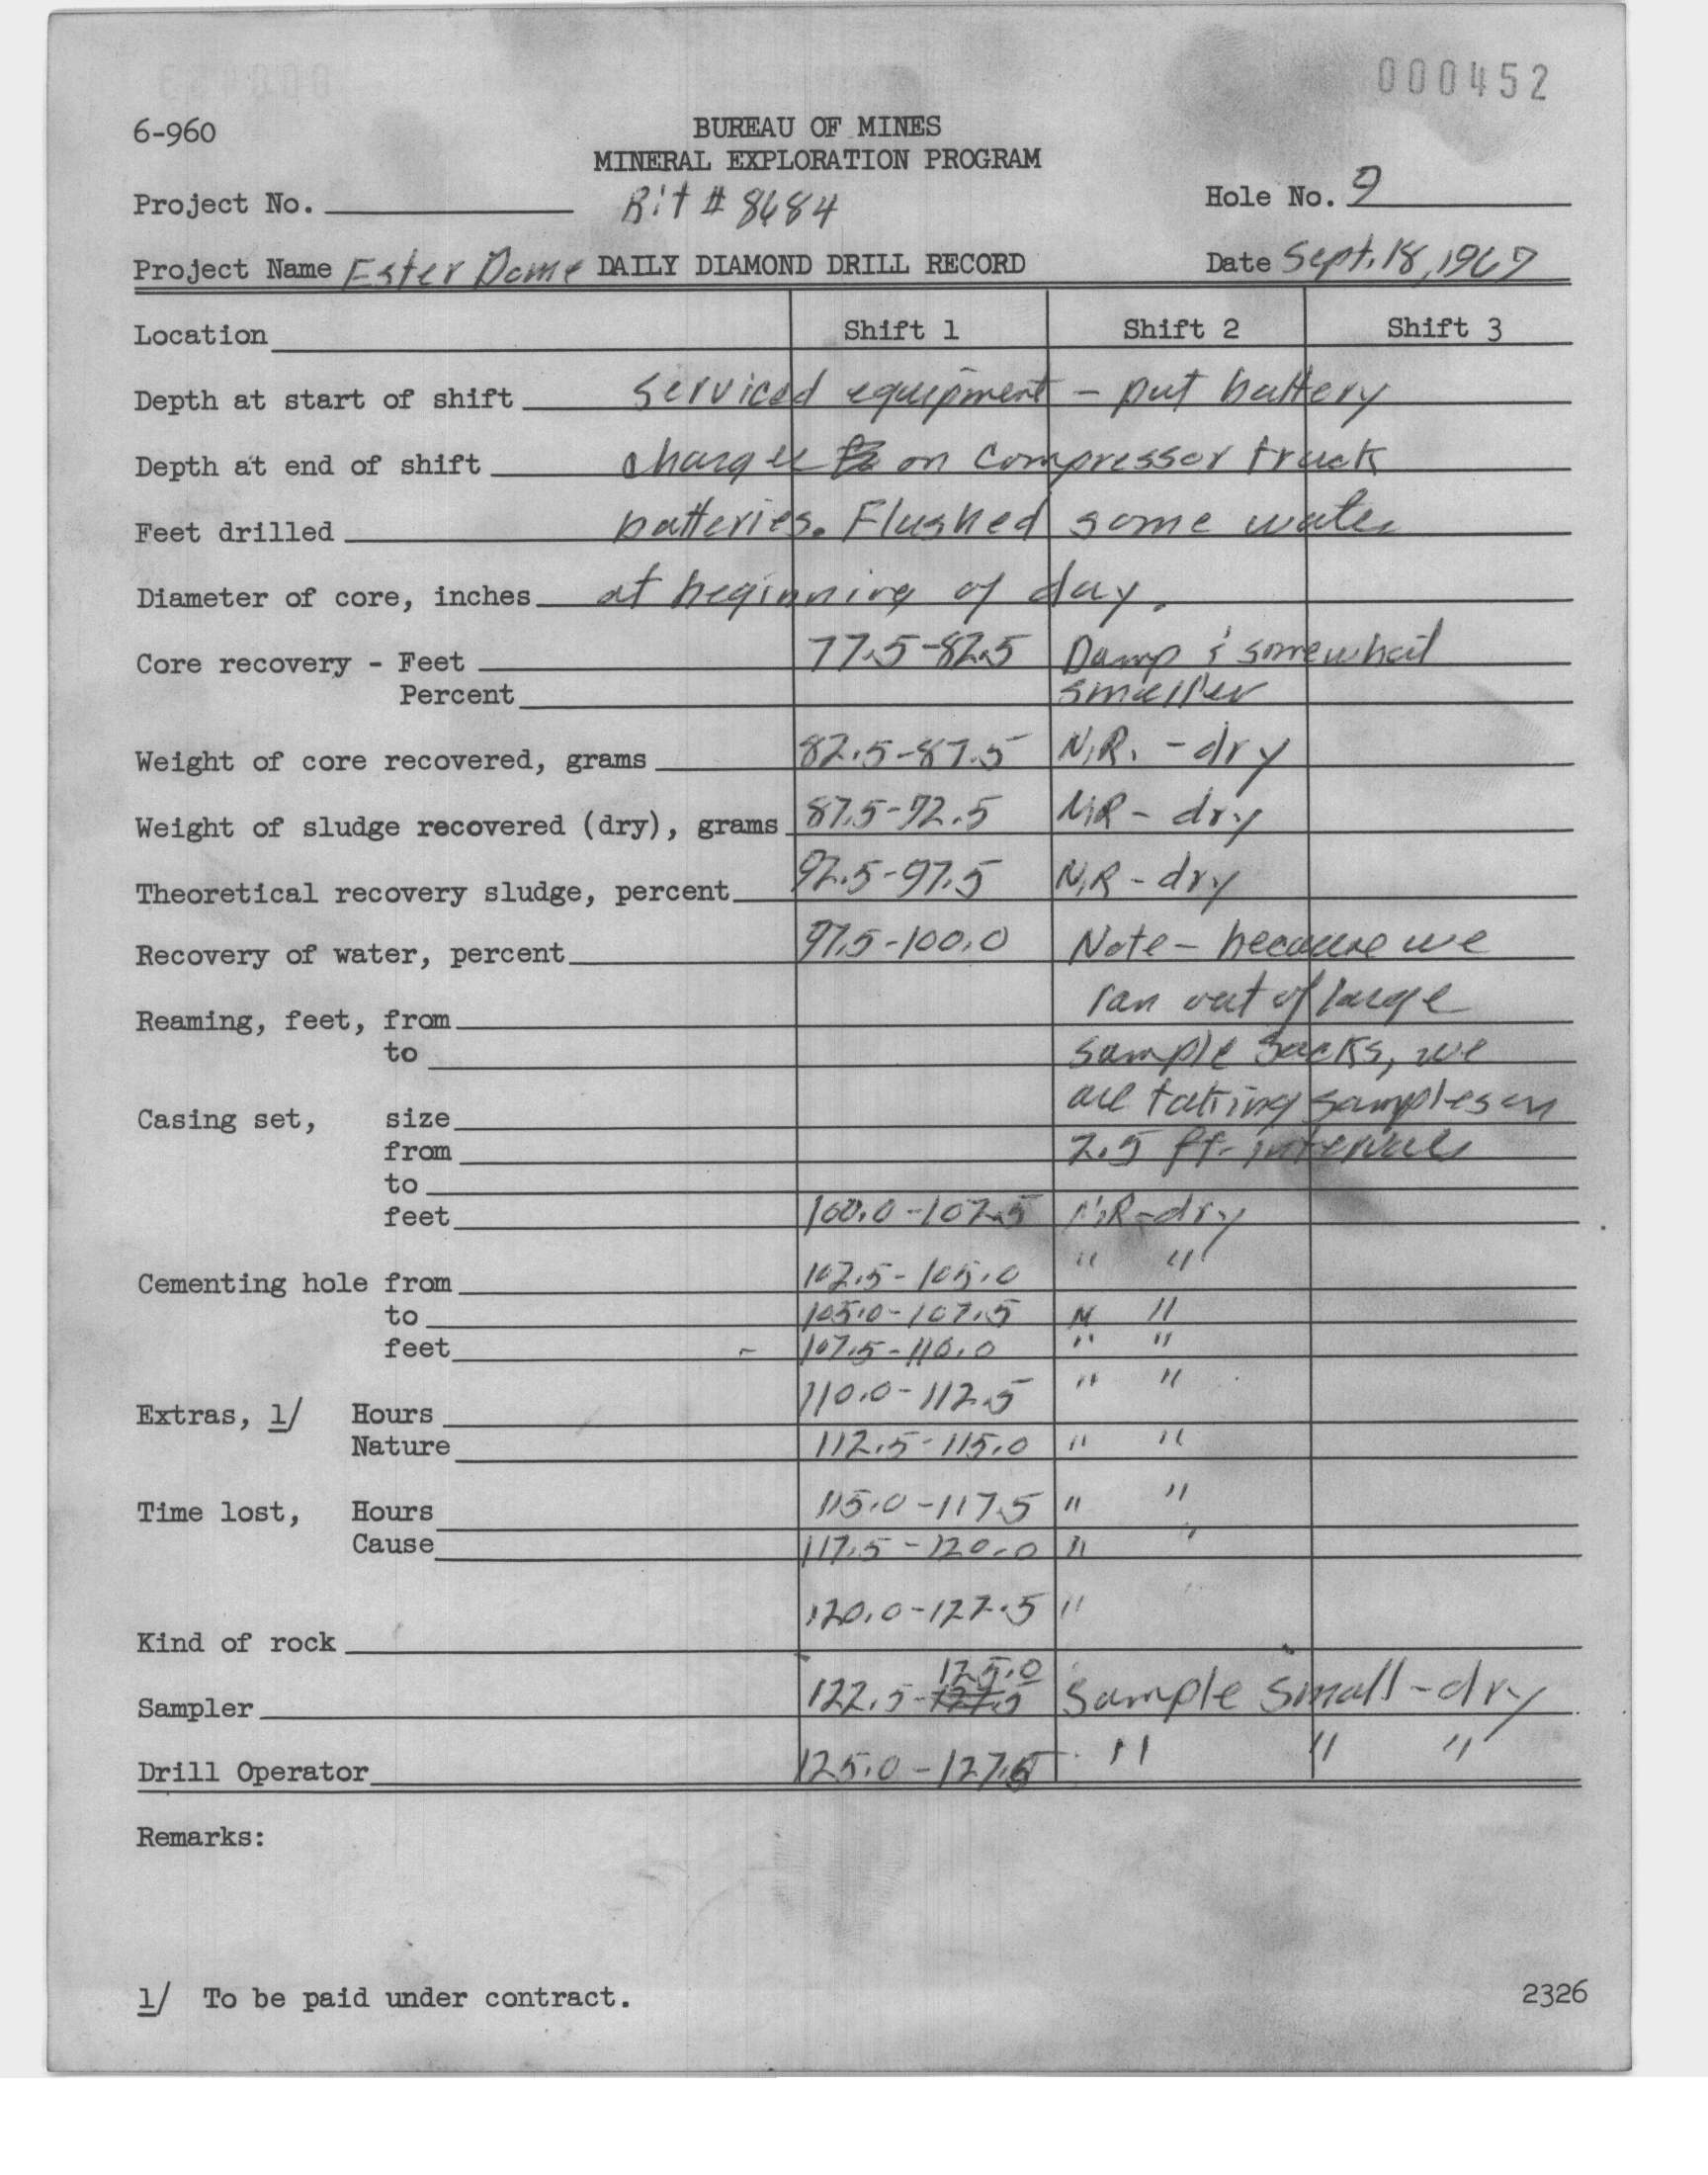 000452
6-960
BUREAU OF MINES
MINERAL EXPLORATION PROGRAM
Project No. Bit # 8684 Hole No. 9
Project Name Ester Dome DAILY DIAMOND DRILL RECORD Date Sept. 18, 1967
Location Shift 1 Shift 2 Shift 3
Depth at start of shift serviced equipment - put battery
Depth at end of shift charger on compressor truck
Feet drilled batteries. Flushed some water
Diameter of core, inches at beginning of day.
Core recovery - Feet 77.5-82.5 Damp & somewhat
Percent smaller
Weight of core recovered, grams 82.5-87.5 N.R. - dry
Weight of sludge recovered (dry), grams 87.5-92.5 N.R - dry
Theoretical recovery sludge, percent 92.5-97.5 N.R - dry
Recovery of water, percent 97.5-100.0 Note - because we
Reaming, feet, from ran out of large
to sample sacks, we
Casing set, size are taking samples on
from 2.5 ft. intervals
to
feet 100.0-102.5 N.R-dry
Cementing hole from 102.5-105.0 " "
to 105.0-107.5 " "
feet - 107.5-110.0 " "
Extras, 1/ Hours 110.0-112.5 " "
Nature 112.5-115.0 " "
Time lost, Hours 115.0-117.5 " "
Cause 117.5-120.0 " "
120.0-122.5 "
Kind of rock
125.0
Sampler 122.5- sample small-dry
Drill Operator 125.0-127.5 " " "
Remarks:
1/ To be paid under contract.
2326